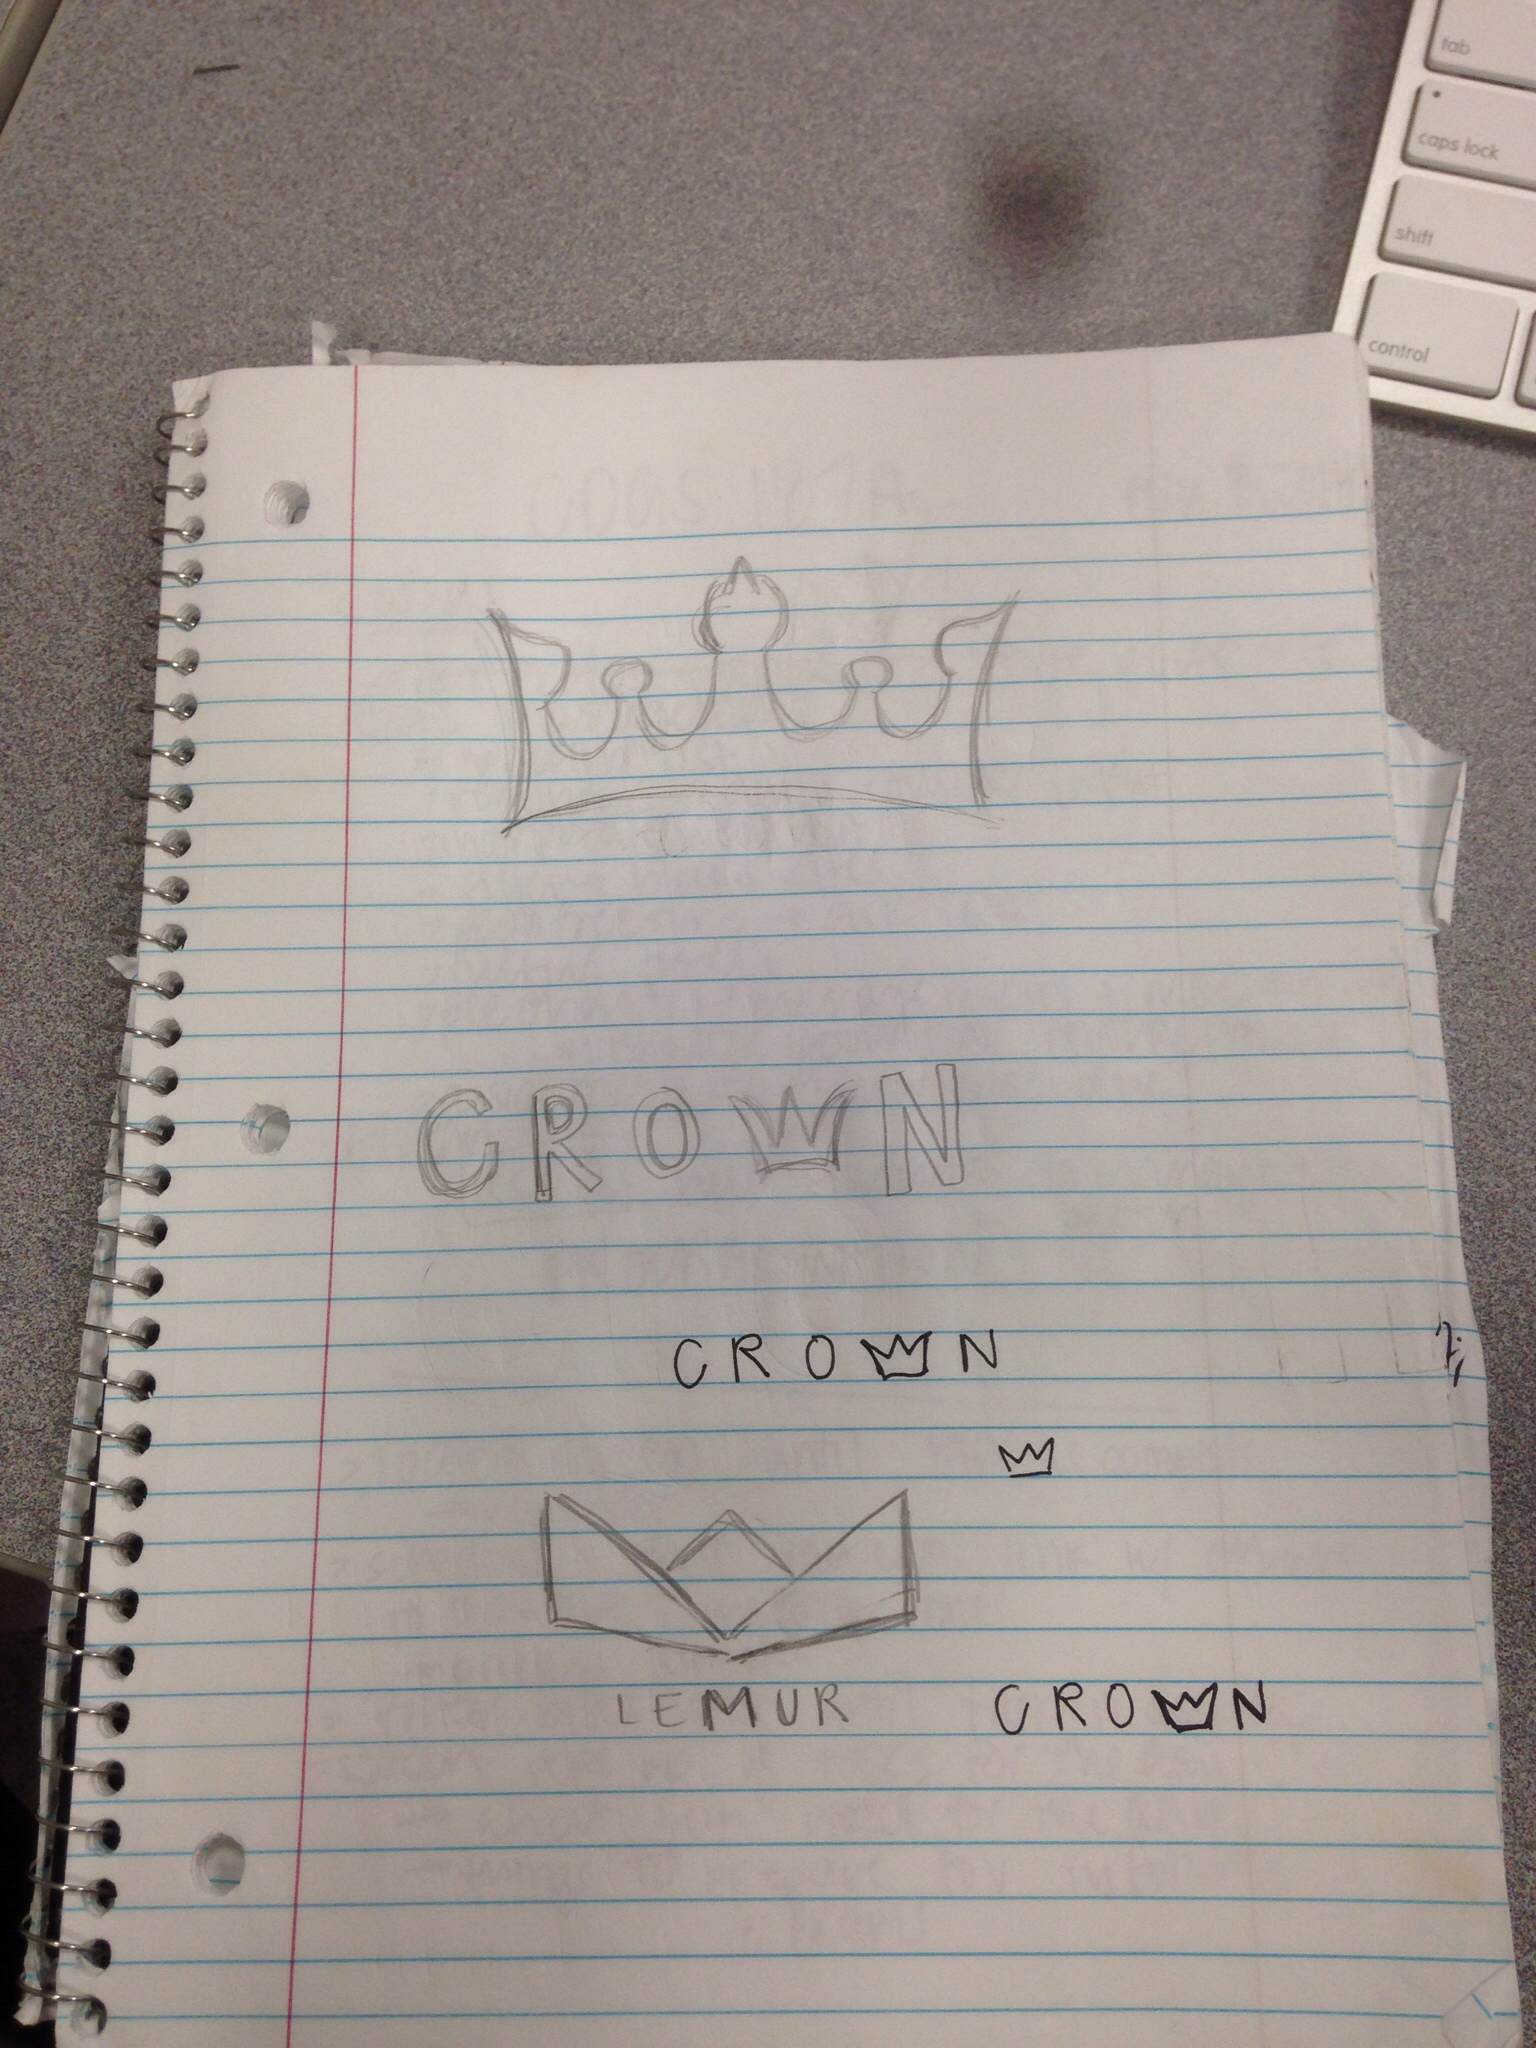 tab
caps lock
shift
control
CROWN
CROWN
LEMUR
CROWN